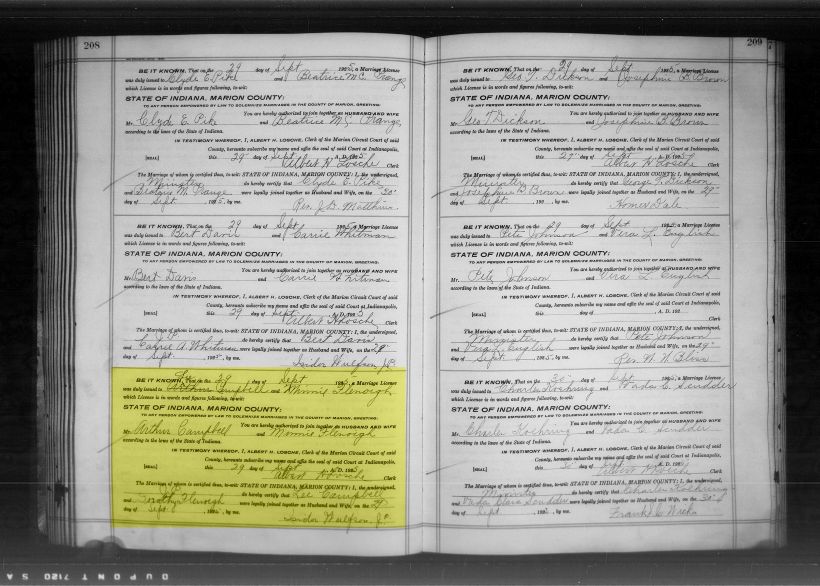 208
BE IT KNOWN, That on the 29 day of Sept 1925, a Marriage License
was duly issued to Clyde E. Pike and Beatrice M.
which License is in words and figures following, to-wit:
STATE OF INDIANA, MARION COUNTY:
TO ANY PERSON EMPOWERED BY LAW TO SOLEMNIZE MARRIAGES IN THE COUNTY OF MARION, GREETING:
You are hereby authorized to join together as HUSBAND AND WIFE
Mr. Clyde E. Pike and Beatrice M.
according to the laws of the State of Indiana.
IN TESTIMONY WHEREOF, I, ALBERT H. LOSCHE, Clerk of the Marion Circuit Court of said
County, hereunto subscribe my name and affix the seal of said Court at Indianapolis,
[SEAL] this 29 day of Sept A. D. 1925
Albert H. Losche Clerk
The Marriage of whom is certified thus, to-wit: STATE OF INDIANA, MARION COUNTY: I, the undersigned,
Minister do hereby certify that Clyde E. Pike
and M. were legally joined together as Husband and Wife, on the
day of Sept. 1925, by me. Rev. J. D. Matthius.
BE IT KNOWN, That on the 29 day of Sept 1925, a Marriage License
was duly issued to Bert Davis and Carrie Whitman
which License is in words and figures following, to-wit:
STATE OF INDIANA, MARION COUNTY:
TO ANY PERSON EMPOWERED BY LAW TO SOLEMNIZE MARRIAGES IN THE COUNTY OF MARION, GREETING:
You are hereby authorized to join together as HUSBAND AND WIFE
Mr. Bert Davis and Carrie Whitman
according to the laws of the State of Indiana.
IN TESTIMONY WHEREOF, I, ALBERT H. LOSCHE, Clerk of the Marion Circuit Court of said
County, hereunto subscribe my name and affix the seal of said Court at Indianapolis,
[SEAL] this 29 day of Sept A. D. 1925
Albert H Losche Clerk
The Marriage of whom is certified thus, to-wit: STATE OF INDIANA, MARION COUNTY: I, the undersigned,
do hereby certify that Bert Davis
and Carrie A. Whitman were legally joined together as Husband and Wife, on the 29"
day of Sept. 1925, by me. Isidor Wulfson, J.P.
BE IT KNOWN, That on the 29 day of Sept 1925, a Marriage License
was duly issued to Arthur Campbell and
which License is in words and figures following, to-wit:
STATE OF INDIANA, MARION COUNTY:
TO ANY PERSON EMPOWERED BY LAW TO SOLEMNIZE MARRIAGES IN THE COUNTY OF MARION, GREETING:
You are hereby authorized to join together as HUSBAND AND WIFE
Mr. Arthur Campbell and
according to the laws of the State of Indiana.
IN TESTIMONY WHEREOF, I, ALBERT H. LOSCHE, Clerk of the Marion Circuit Court of said
County, hereunto subscribe my name and affix the seal of said Court at Indianapolis,
[SEAL] this 29 day of Sept A. D. 1925
Albert H Losche Clerk
The Marriage of whom is certified thus, to-wit: STATE OF INDIANA, MARION COUNTY: I, the undersigned,
do hereby certify that Lee Campbell
and Dorothy were legally joined together as Husband and Wife, on the
day of Sept. 1925, by me. Isidor Wulfson J.P.
209
BE IT KNOWN, That on the 29 day of Sept 1925, a Marriage License
was duly issued to Geo. T. Dickson and Josephine B. Brown
which License is in words and figures following, to-wit:
STATE OF INDIANA, MARION COUNTY:
TO ANY PERSON EMPOWERED BY LAW TO SOLEMNIZE MARRIAGES IN THE COUNTY OF MARION, GREETING:
You are hereby authorized to join together as HUSBAND AND WIFE
Mr. Geo T. Dickson and Josephine B. Brown
according to the laws of the State of Indiana.
IN TESTIMONY WHEREOF, I, ALBERT H. LOSCHE, Clerk of the Marion Circuit Court of said
County, hereunto subscribe my name and affix the seal of said Court at Indianapolis,
[SEAL] this 29" day of Sept A. D. 1925
Albert H Losche Clerk
The Marriage of whom is certified thus, to-wit: STATE OF INDIANA, MARION COUNTY: I, the undersigned,
Minister do hereby certify that George T. Dickson
and Josephine B. Brown were legally joined together as Husband and Wife, on the 29"
day of Sept. 1925, by me. Homer Dale
BE IT KNOWN, That on the 29 day of Sept 1925, a Marriage License
was duly issued to Pete Johnson and Vera L. English
which License is in words and figures following, to-wit:
STATE OF INDIANA, MARION COUNTY:
TO ANY PERSON EMPOWERED BY LAW TO SOLEMNIZE MARRIAGES IN THE COUNTY OF MARION, GREETING:
You are hereby authorized to join together as HUSBAND AND WIFE
Mr. Pete Johnson and Vera L. English
according to the laws of the State of Indiana.
IN TESTIMONY WHEREOF, I, ALBERT H. LOSCHE, Clerk of the Marion Circuit Court of said
County, hereunto subscribe my name and affix the seal of said Court at Indianapolis,
[SEAL] this day of , A. D. 192
Clerk
The Marriage of whom is certified thus, to-wit: STATE OF INDIANA, MARION COUNTY: I, the undersigned,
do hereby certify that Pete Johnson
and Vera L. English were legally joined together as Husband and Wife, on the 29"
day of Sept. 1925, by me. Rev. W. N.
BE IT KNOWN, That on the 30 day of Sept 1925, a Marriage License
was duly issued to Charles Koehring and Vada E. Scudder
which License is in words and figures following, to-wit:
STATE OF INDIANA, MARION COUNTY:
TO ANY PERSON EMPOWERED BY LAW TO SOLEMNIZE MARRIAGES IN THE COUNTY OF MARION, GREETING:
You are hereby authorized to join together as HUSBAND AND WIFE
Mr. Charles Koehring and Vada E. Scudder
according to the laws of the State of Indiana.
IN TESTIMONY WHEREOF, I, ALBERT H. LOSCHE, Clerk of the Marion Circuit Court of said
County, hereunto subscribe my name and affix the seal of said Court at Indianapolis,
[SEAL] this 30 day of Sept A. D. 1925
Albert H Losche Clerk
The Marriage of whom is certified thus, to-wit: STATE OF INDIANA, MARION COUNTY: I, the undersigned,
Minister do hereby certify that Charles Koehring
and Vada Scudder were legally joined together as Husband and Wife, on the 30"
day of Sept. 1925, by me. Frank
DUPONT 7120 SA